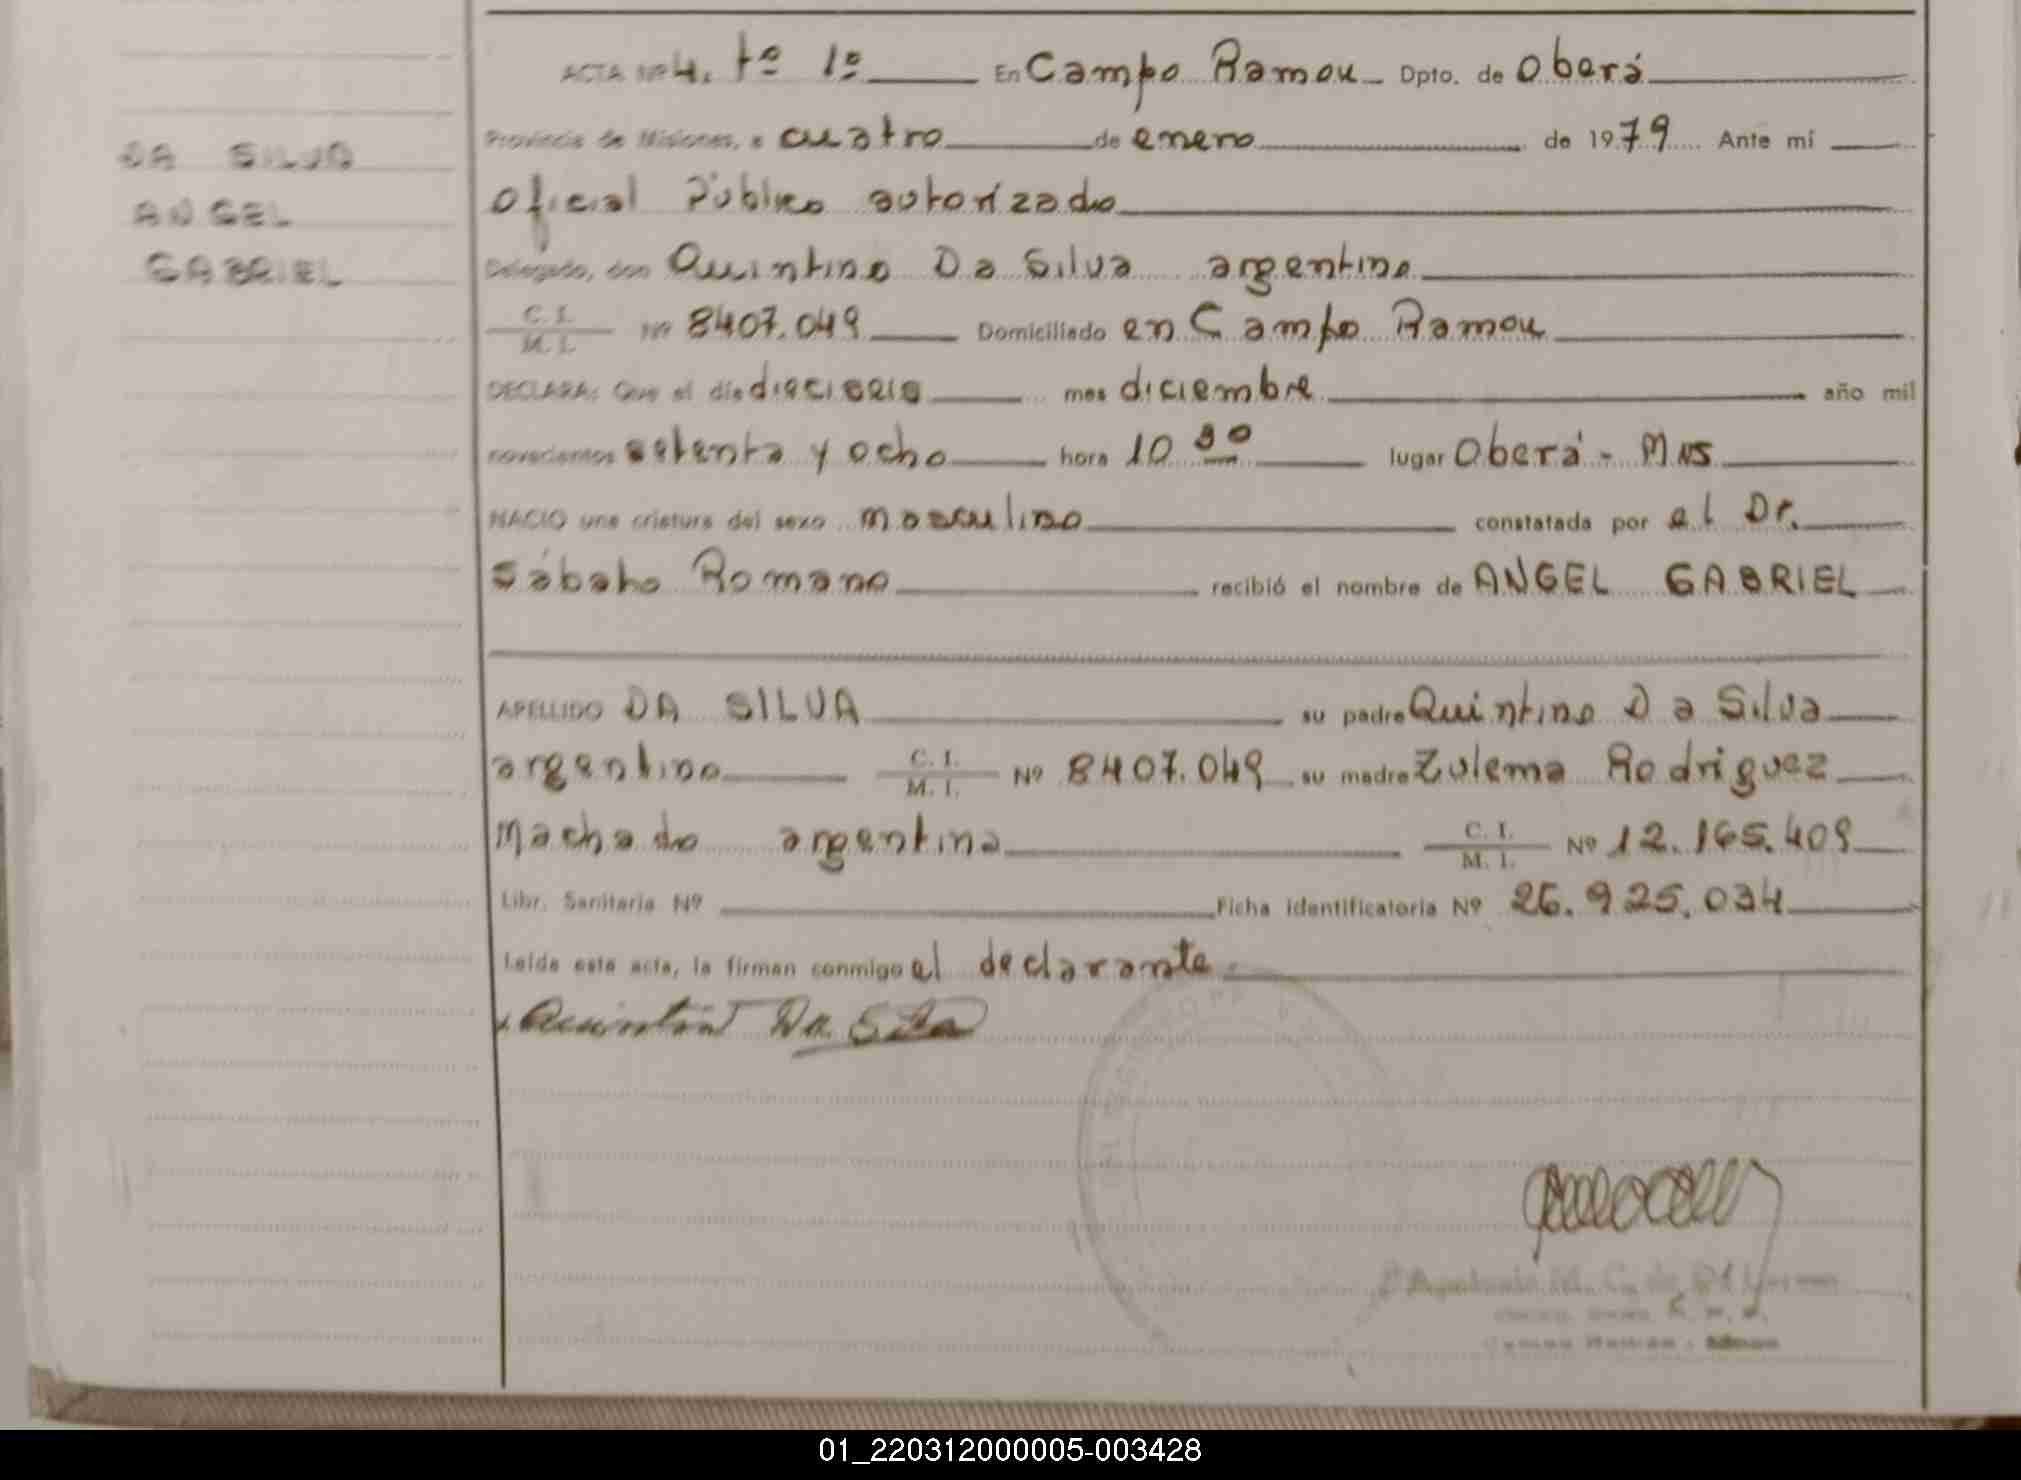 ACTA Nº 4. tº 1º En Campo Ramou Dpto. de Oberá
Provincia de Misiones, a cuatro de enero de 1979 Ante mí
Oficial Público autorizado
DA SILVA
ANGEL
GABRIEL
Delegado, don Quintino Da Silva argentino
C. I.
M. I. Nº 8407.049 Domiciliado en Campo Ramou
DECLARA: Que el día dieciseis mes diciembre año mil
novecientos setenta y ocho hora 10 30 lugar Oberá - Mns
NACIO una criatura del sexo masculino constatada por el Dr.
Sábato Romano recibió el nombre de ANGEL GABRIEL
APELLIDO DA SILVA su padre Quintino Da Silva
argentino C. I.
M. I. Nº 8407.049 su madre Zulema Rodriguez
Machado argentina C. I.
M. I. Nº 12.165.409
Libr. Sanitaria Nº Ficha identificatoria Nº 26.925.034
Leída esta acta, la firman conmigo el declarante.
Da Silva
01_220312000005-003428